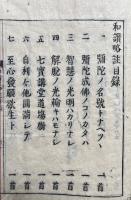 和讃略註目録
一 彌陀ノ名號トナヘツヽ 一首
二 彌陀成佛ノコノカタハ 一首
三 智慧ノ光明ハカリナシ 一首
四 解脱ノ光輪キハモナシ 一首
五 七寶講堂道場樹 一首
六 自利利他圓満シテ 一首
七 至心發願欲生ト 一首